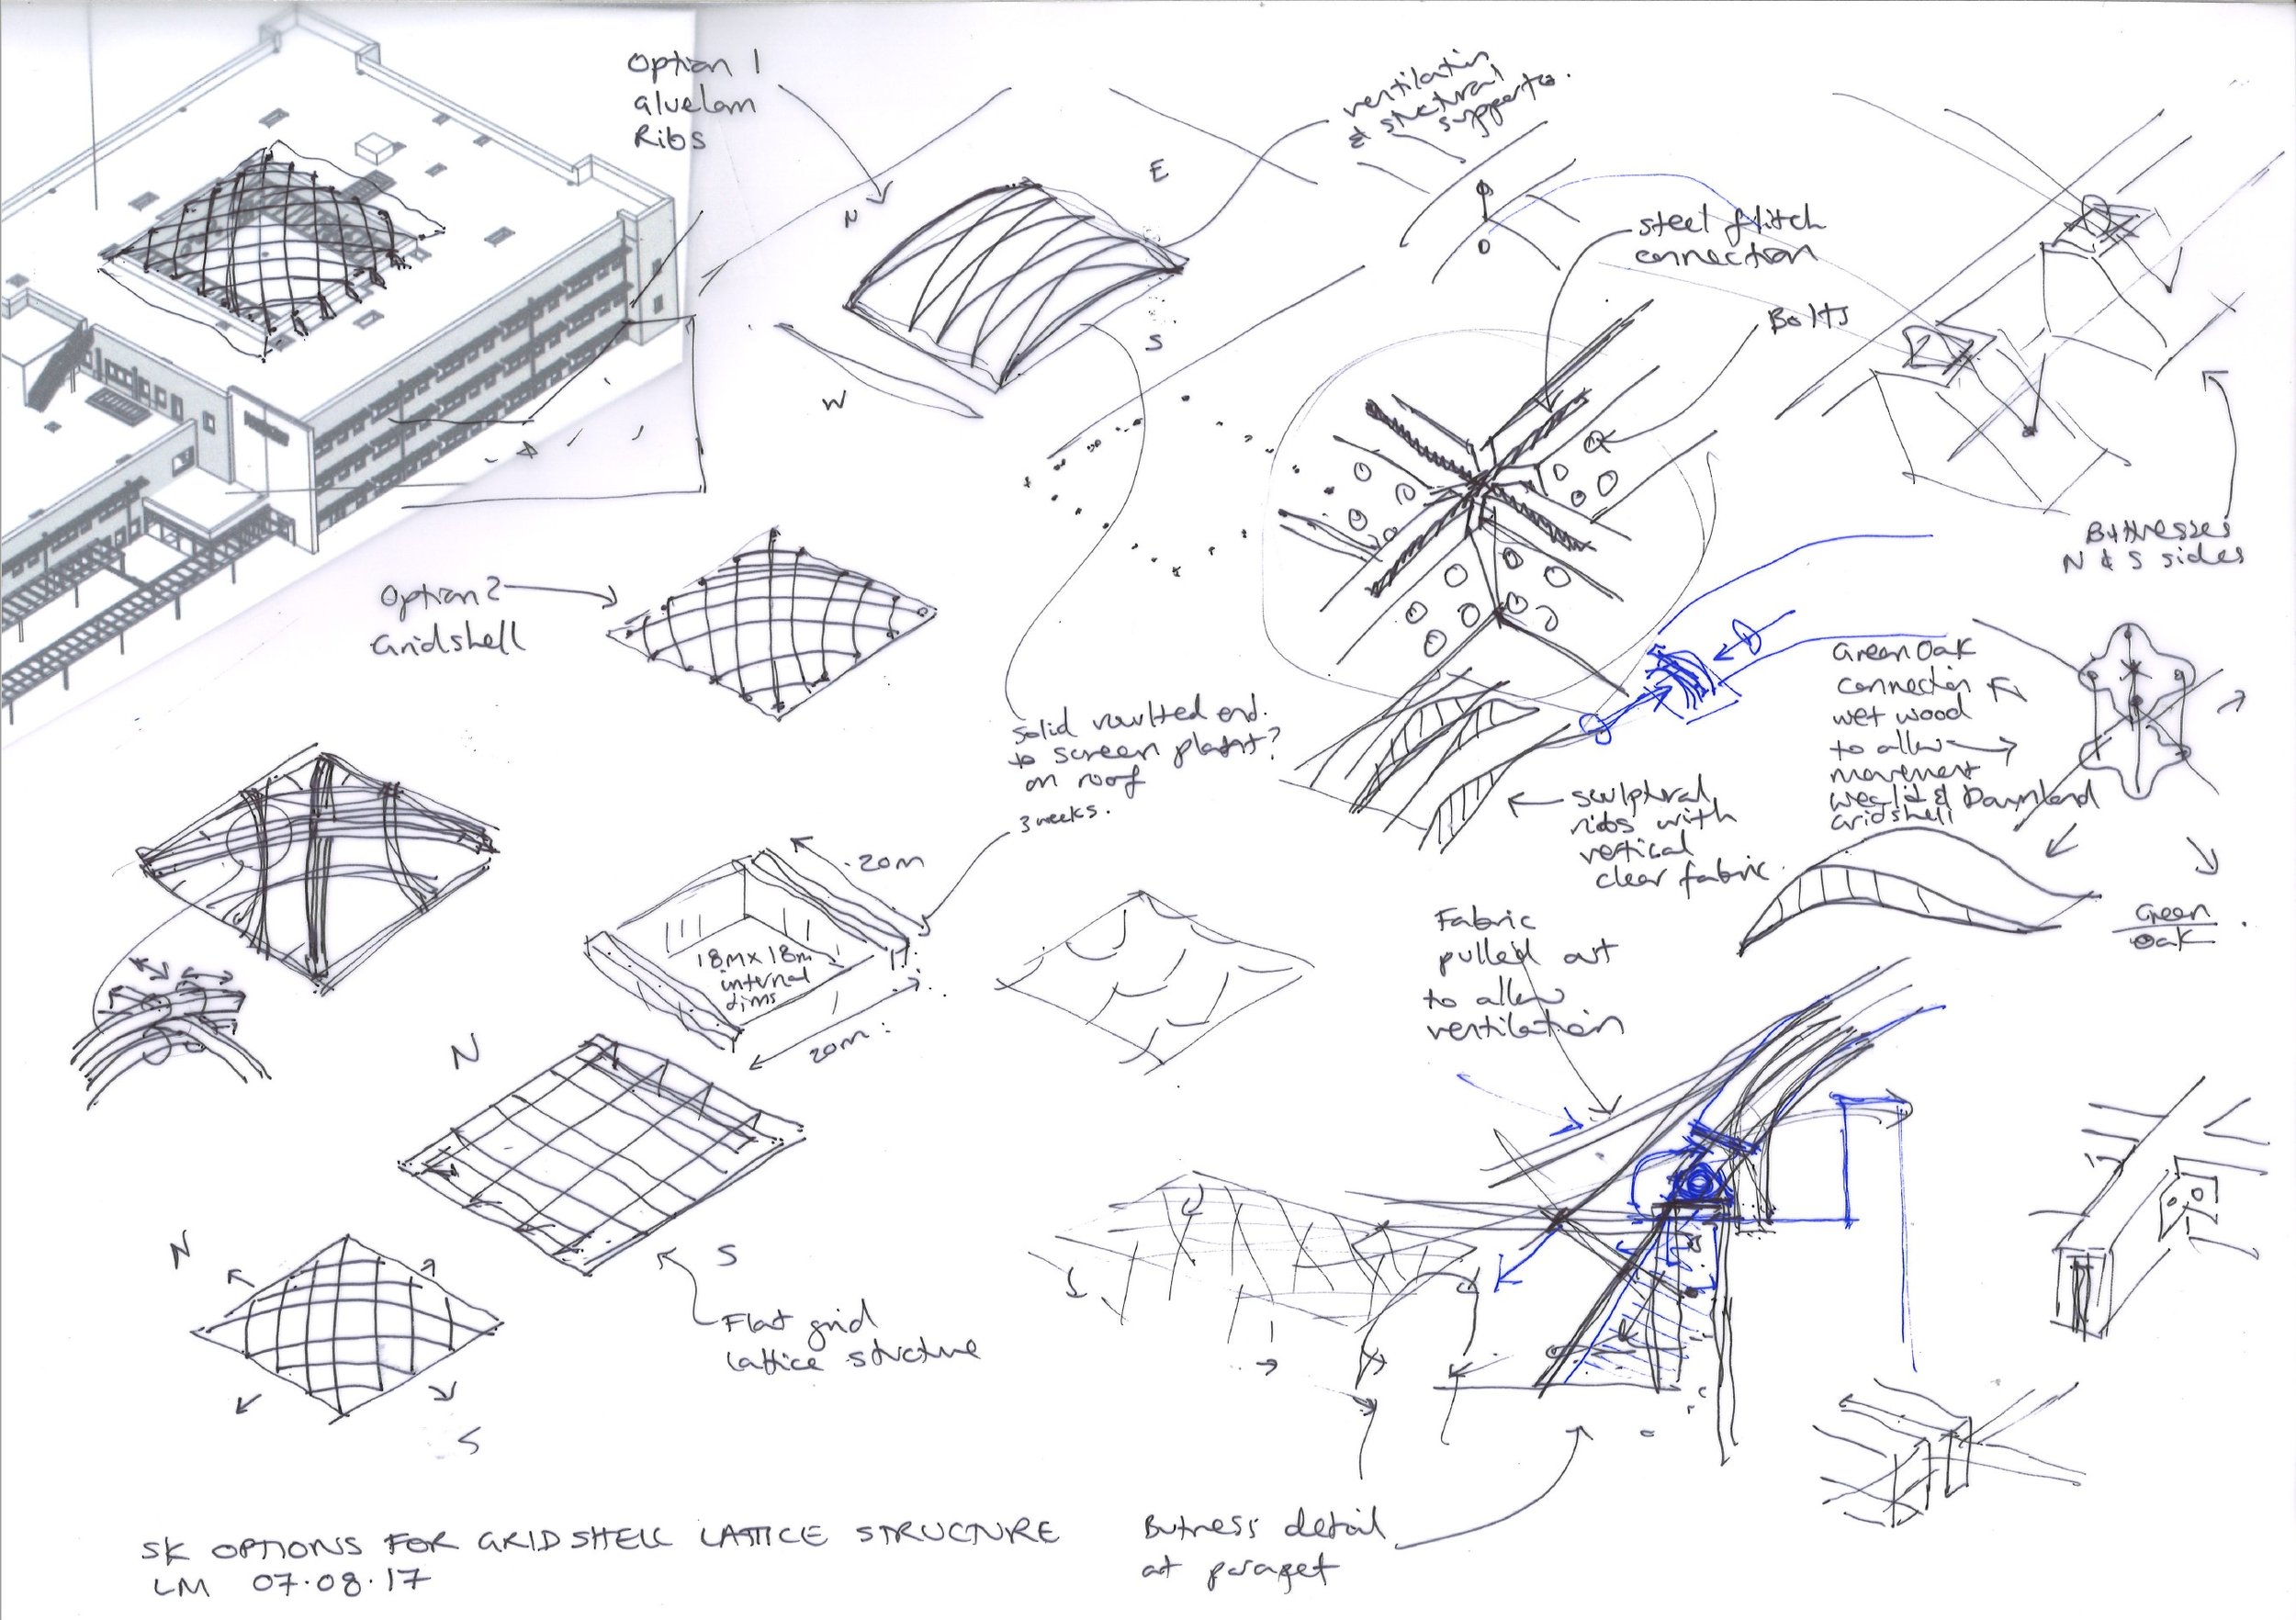 Option 1
Gluelam
Ribs
ventilation
& structural
supports.
N
E
S
W
steel flitch
connection
Bolts
Buttresses
N & S sides
Option 2
Gridshell
Solid vaulted end
to screen plant?
on roof
3 weeks.
Green Oak
connection
wet wood
to allow
movement
Weald & Downland
Gridshell
sculptural
ribs with
vertical
clear fabric.
Green
Oak
20m
18m x 18m
internal
dims
20m
Fabric
pulled out
to allow
ventilation
N
S
Flat grid
lattice structure
N
S
SK OPTIONS FOR GRIDSHELL LATTICE STRUCTURE
LM 07.08.17
Butress detail
at parapet